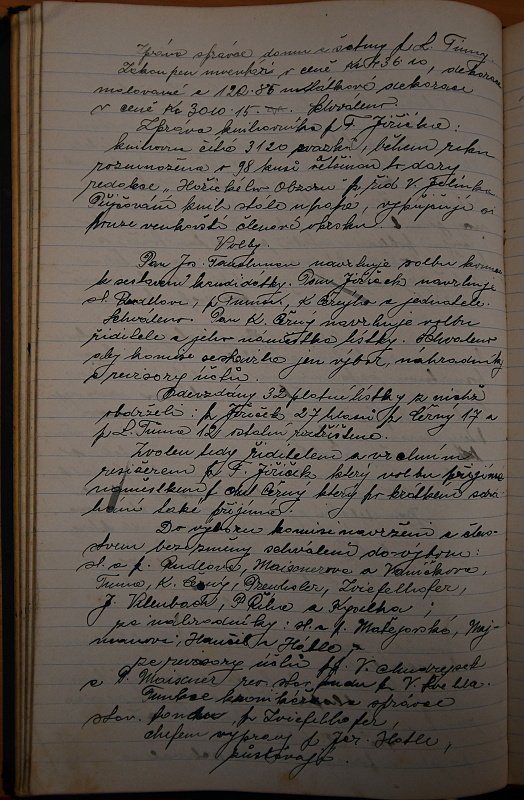 Zpráva správce domu a šatny p. L. Tumy.
Zakoupen inventář v ceně Kč 436·10, dekorace
malované a 120·85 dekorace
v ceně Kč 3010·15. Schváleno.
Zpráva knihovníka p. F. Jiřička:
knihovna čítá 3120 svazků, během roku
rozmnožena o 98 kusů většinou to dary
redakce „Hořického Obzoru" p. říd. V. Jelínka
Půjčování knih stále upadá, vypůjčují si
pouze venkovští členové obvodu.
Volby.
Pan Jos. navrhuje volbu komise
k sestavení kandidátky. Pan Jiřiček navrhuje
sl. p. Tumu, K. a jednatele.
Schváleno. Pan K. Černý navrhuje volbu
ředitele a jeho náměstka lístky. Schváleno
aby komise sestavila jen výbor, náhradníky
a revisory účtů.
Odevzdány 32 platné lístky z nichž
obdržela: p. Jiřiček 27 hlasů p. Černý 17 a
p. L. Tuma 12, ostatní roztříštěno.
Zvolen tedy ředitelem a vrchním
režisérem p. F. Jiřiček který volbu přijímá
náměstkem p. Černý který po krátkém
také přijímá.
Do výboru komisí navrženi a
beze změny schváleni do výboru:
sl. a p. Maisnerova a Vaníčkova,
Tuma, K. Černý, Zviefelhofer,
J. Vilenbach, P. Říha a Kyselka;
za náhradníky: sl. a p. Matějovská,
Hančil a Hátle
za revisory účtů p. V.
a D. Maisner rev. stav. fondu p. V.
Funkce kronikáře a správce
stav. fondu p. Zviefelhofer,
chefem výpravy p. Jar. Hátle,
zůstávají.